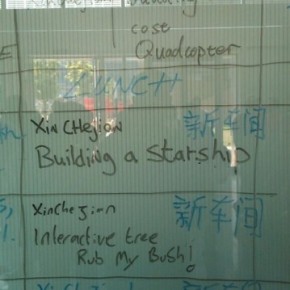 cost
Quadcopter
XinCHEjian 新车间
Building a Starship
XinCheJian 新车间
Interactive tree
Rub My Bush!